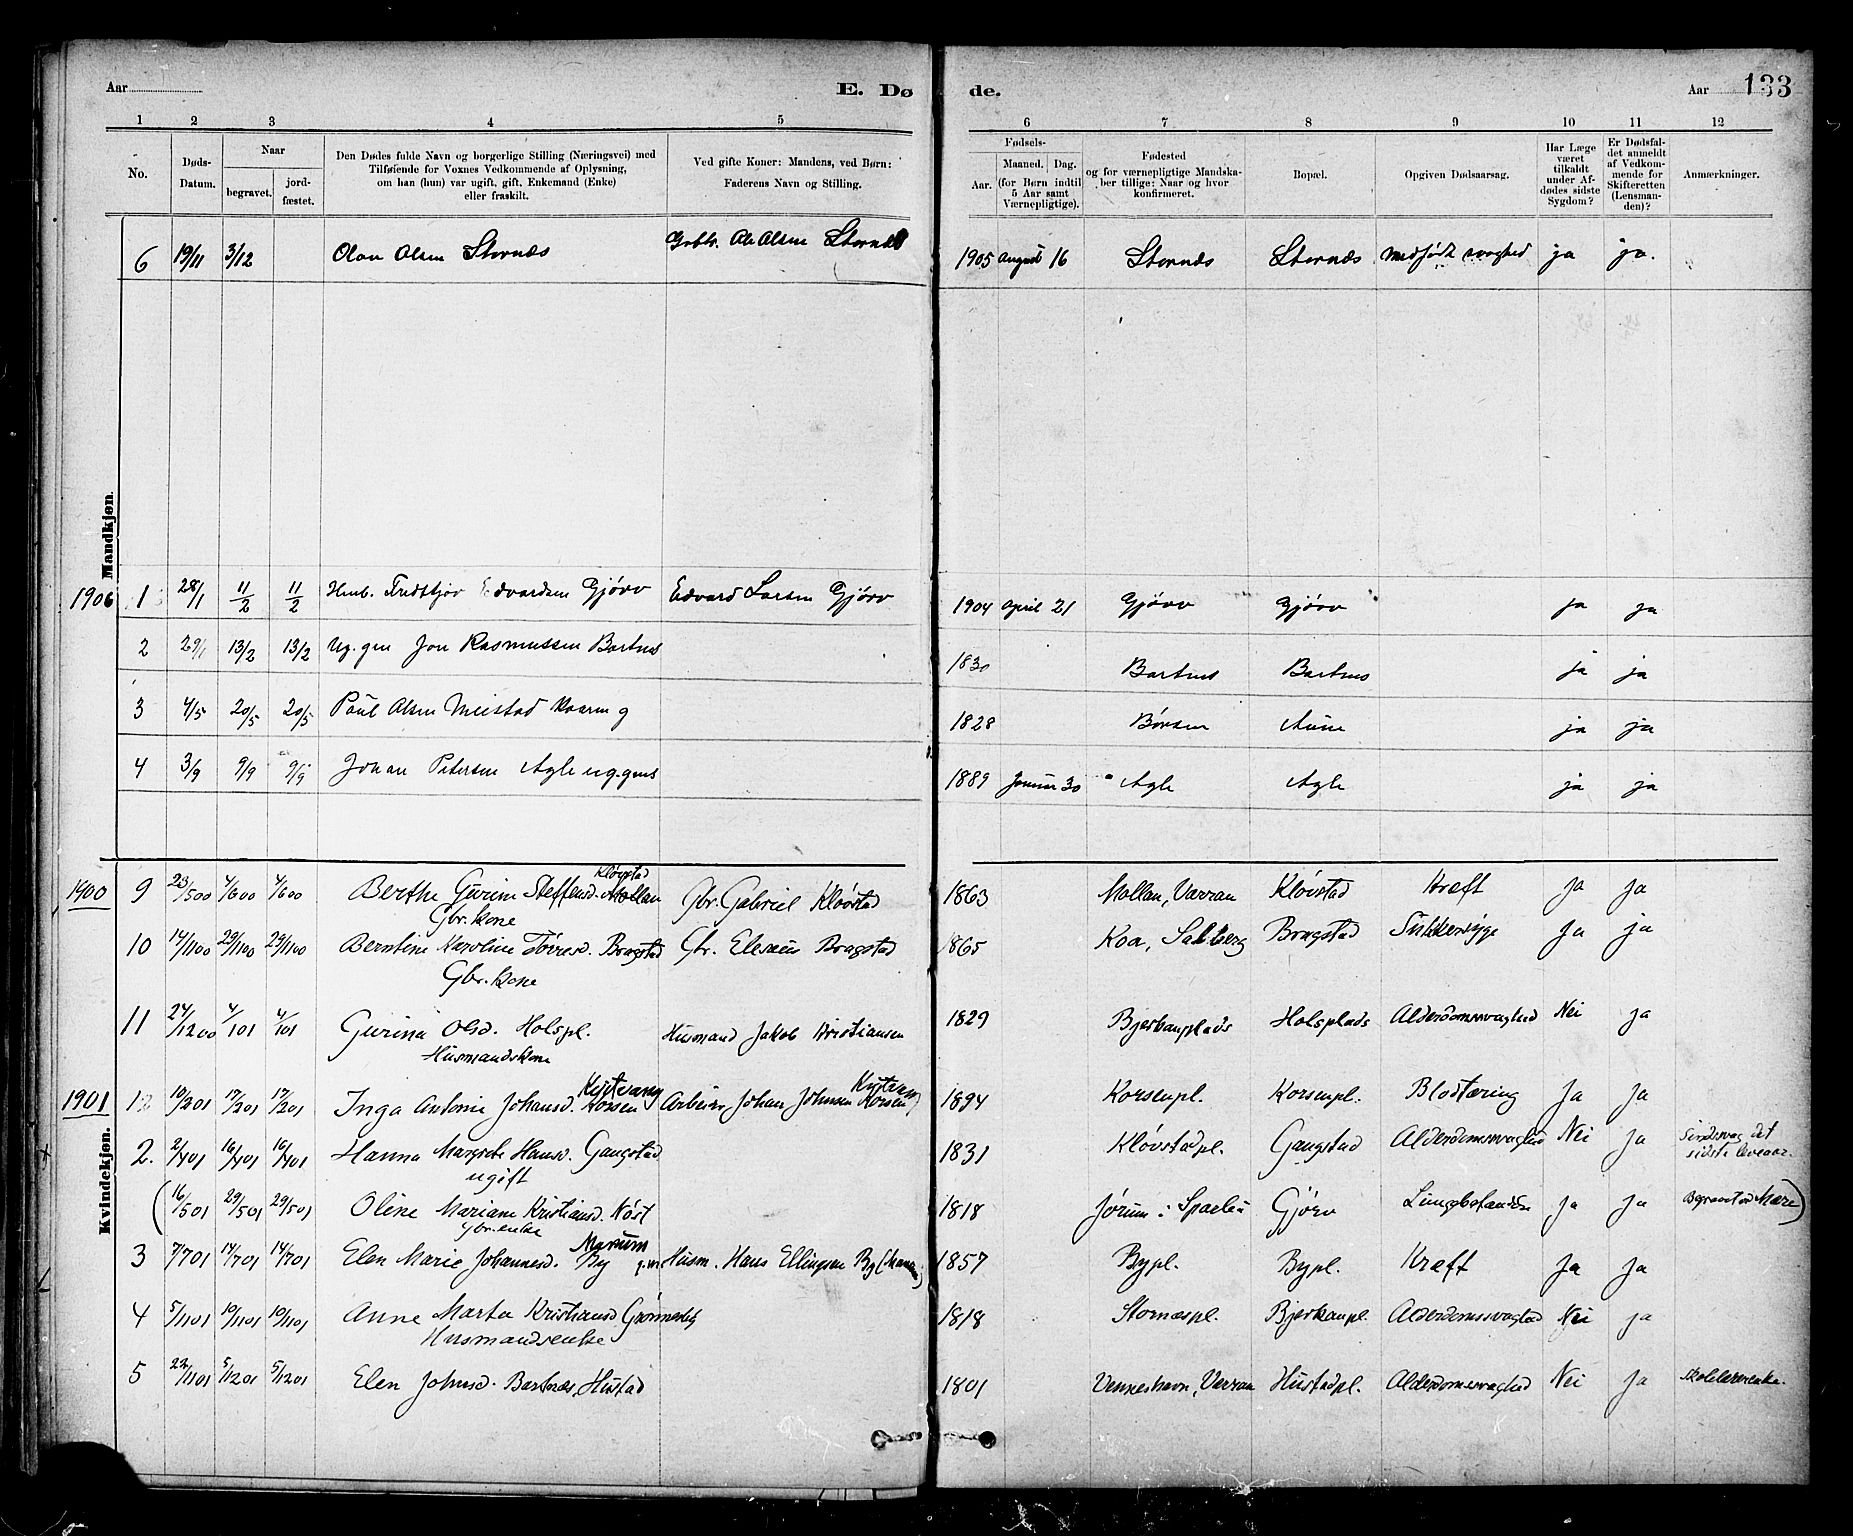 Aar E. Dø de. Aar 133
1 2 3 4 5 6 7 8 9 10 11 12
No. Døds-Datum. Naar begravet. jordfæstet. Den Dødes fulde Navn og borgerlige Stilling (Næringsvei) med Tilføiende for Voxnes Vedkommende af Oplysning, om han (hun) var ugift, gift, Enkemand (Enke) eller fraskilt. Ved gifte Koner: Mandens, ved Børn: Faderens Navn og Stilling. Fødsels- Aar. Maaned. Dag. (for Børn indtil 5 Aar samt Værnepligtige). Fødested og for værnepligtige Mandskaber tillige: Naar og hvor konfirmeret. Bopæl. Opgiven Dødsaarsag. Har Læge været tilkaldt under Afdødes sidste Sygdom? Er Dødsfaldet anmeldt af Vedkommende for Skifteretten (Lensmanden)? Anmærkninger.
6 19/11 3/12 Olav Olsen Stornæs Grbbr. Ole Olsen Stornæs 1905 august 16 Stornæs Stornæs medfødt svaghed ja ja.
Mandkjøn.
1906 1 28/1 11/2 11/2 Fredtjov Edvardsen Gjørv Edvard Larsen Gjørv 1904 april 21 Gjørv Gjørv ja ja
2 29/1 13/2 13/2 ug. gm Jon Rasmussen Bartnes 1830 Bartnes Bartnes ja ja
3 4/5 20/5 20/5 Paul Olsen Meistad 1828 Børsen Aune ja ja
4 3/9 9/9 9/9 Johan Petersen Agle ug.gms 1889 Januar 30 Agle Agle ja ja
Kvindekjøn.
1900 9 23/500 4/600 4/600 Berthe Gurine Steffensd. Mollan Kløvstad Gbr. Gabriel Kløvstad 1863 Mollan, Værran Kløvstad Kræft Ja Ja
Gbr. kone
10 14/1100 29/1100 29/1100 Berntine Karoline Tørresd. Bragstad Gbr. Eleseus Bragstad 1865 Koa, Sakshaug Bragstad Sukkersyge Ja ja
Gbr. kone
11 24/1200 4/101 4/101 Gurina Olsd. Holspl. Husmand Jakob Kristiansen 1829 Bjerkanplads Holsplads Alderdomssvaghed Nei ja
Husmandskone
1901 1 10/201 17/201 17/201 Inga Antonie Johansd. Korsen Kvitvang Arbeider Johan Johnsen Korsen 1894 Korsenpl. Korsenpl. Blodtæring Ja Ja
2. 2/401 16/401 16/401 Hanna Margrete Hansd. Gangstad 1831 Kløvstadpl. Gangstad Alderdomssvaghed Nei Ja Sindssvag det sidste leveaar.
ugift
(16/501 29/501 29/501 Oline Mariane Kristiansd. Nøst 1818 Jørum i Sparbu Gjørv Lungebetændelse Ja Ja Begravet ved Mære)
Gbr. enke
3 7/701 14/701 14/701 Elen Marie Johannesd. By Marum Husm. Hans Ellingsen By 1857 Bypl. Bypl. Kræft Ja Ja
4 5/1101 10/1101 10/1101 Anne Marta Kristiansd. 1818 Stornæspl. Bjerkanpl. Alderdomssvaghed Nei ja
Husmandsenke
5 22/1101 5/1201 5/1201 Elen Johnsd. Bartnæs, Hustad 1801 Venneshavn, Værran Hustadpl. Alderdomssvaghed Nei Ja Skolelærerenke.